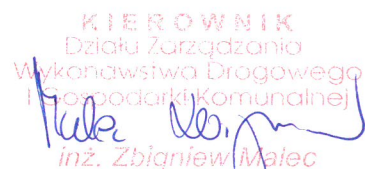 KIEROWNIK
Działu Zarządzania
Wykonawstwa Drogowego
i Gospodarki Komunalnej
inż. Zbigniew Malec